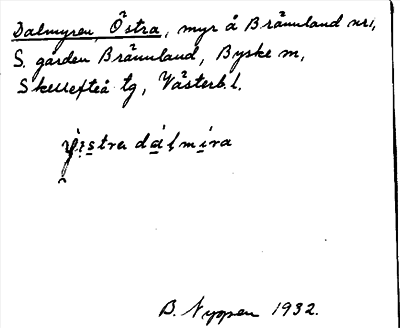 Dalmyren, Östra, myr å Brännland nr 1,
S. gården Brännland, Byske sn,
Skellefteå tg, Västerb. l.
dálmira
B. Nyppen 1932.